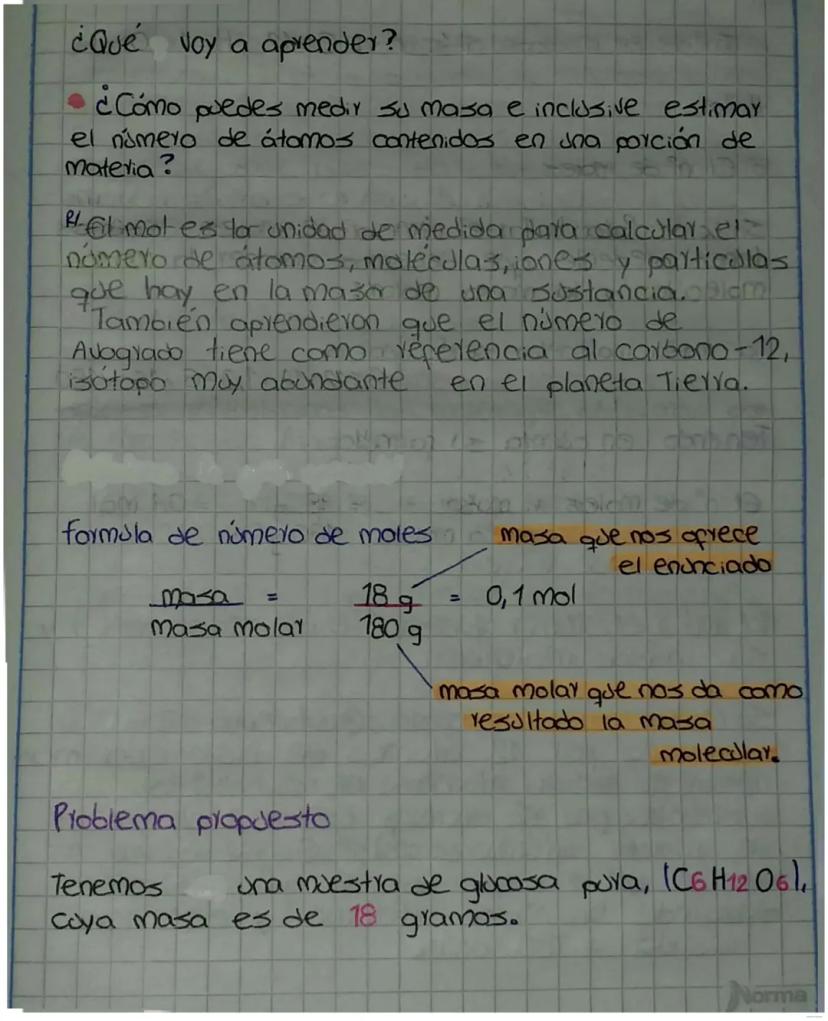 ¿Qué voy a aprender?
• ¿Cómo puedes medir su masa e inclusive estimar
el número de átomos contenidos en una porción de
materia?
R/ El mol es la unidad de medida para calcular el
número de átomos, moléculas, iones y particulas
que hay en la masa de una sustancia.
También aprendieron que el número de
Avogrado tiene como referencia al carbono-12,
isótopo muy abundante en el planeta Tierra.
formula de número de moles
masa que nos ofrece
el enunciado
masa = 18 g = 0,1 mol
masa molar 180 g
masa molar que nos da como
resultado la masa
molecular.
Problema propuesto
Tenemos una muestra de glucosa pura, (C6 H12 O6),
cuya masa es de 18 gramos.
Norma